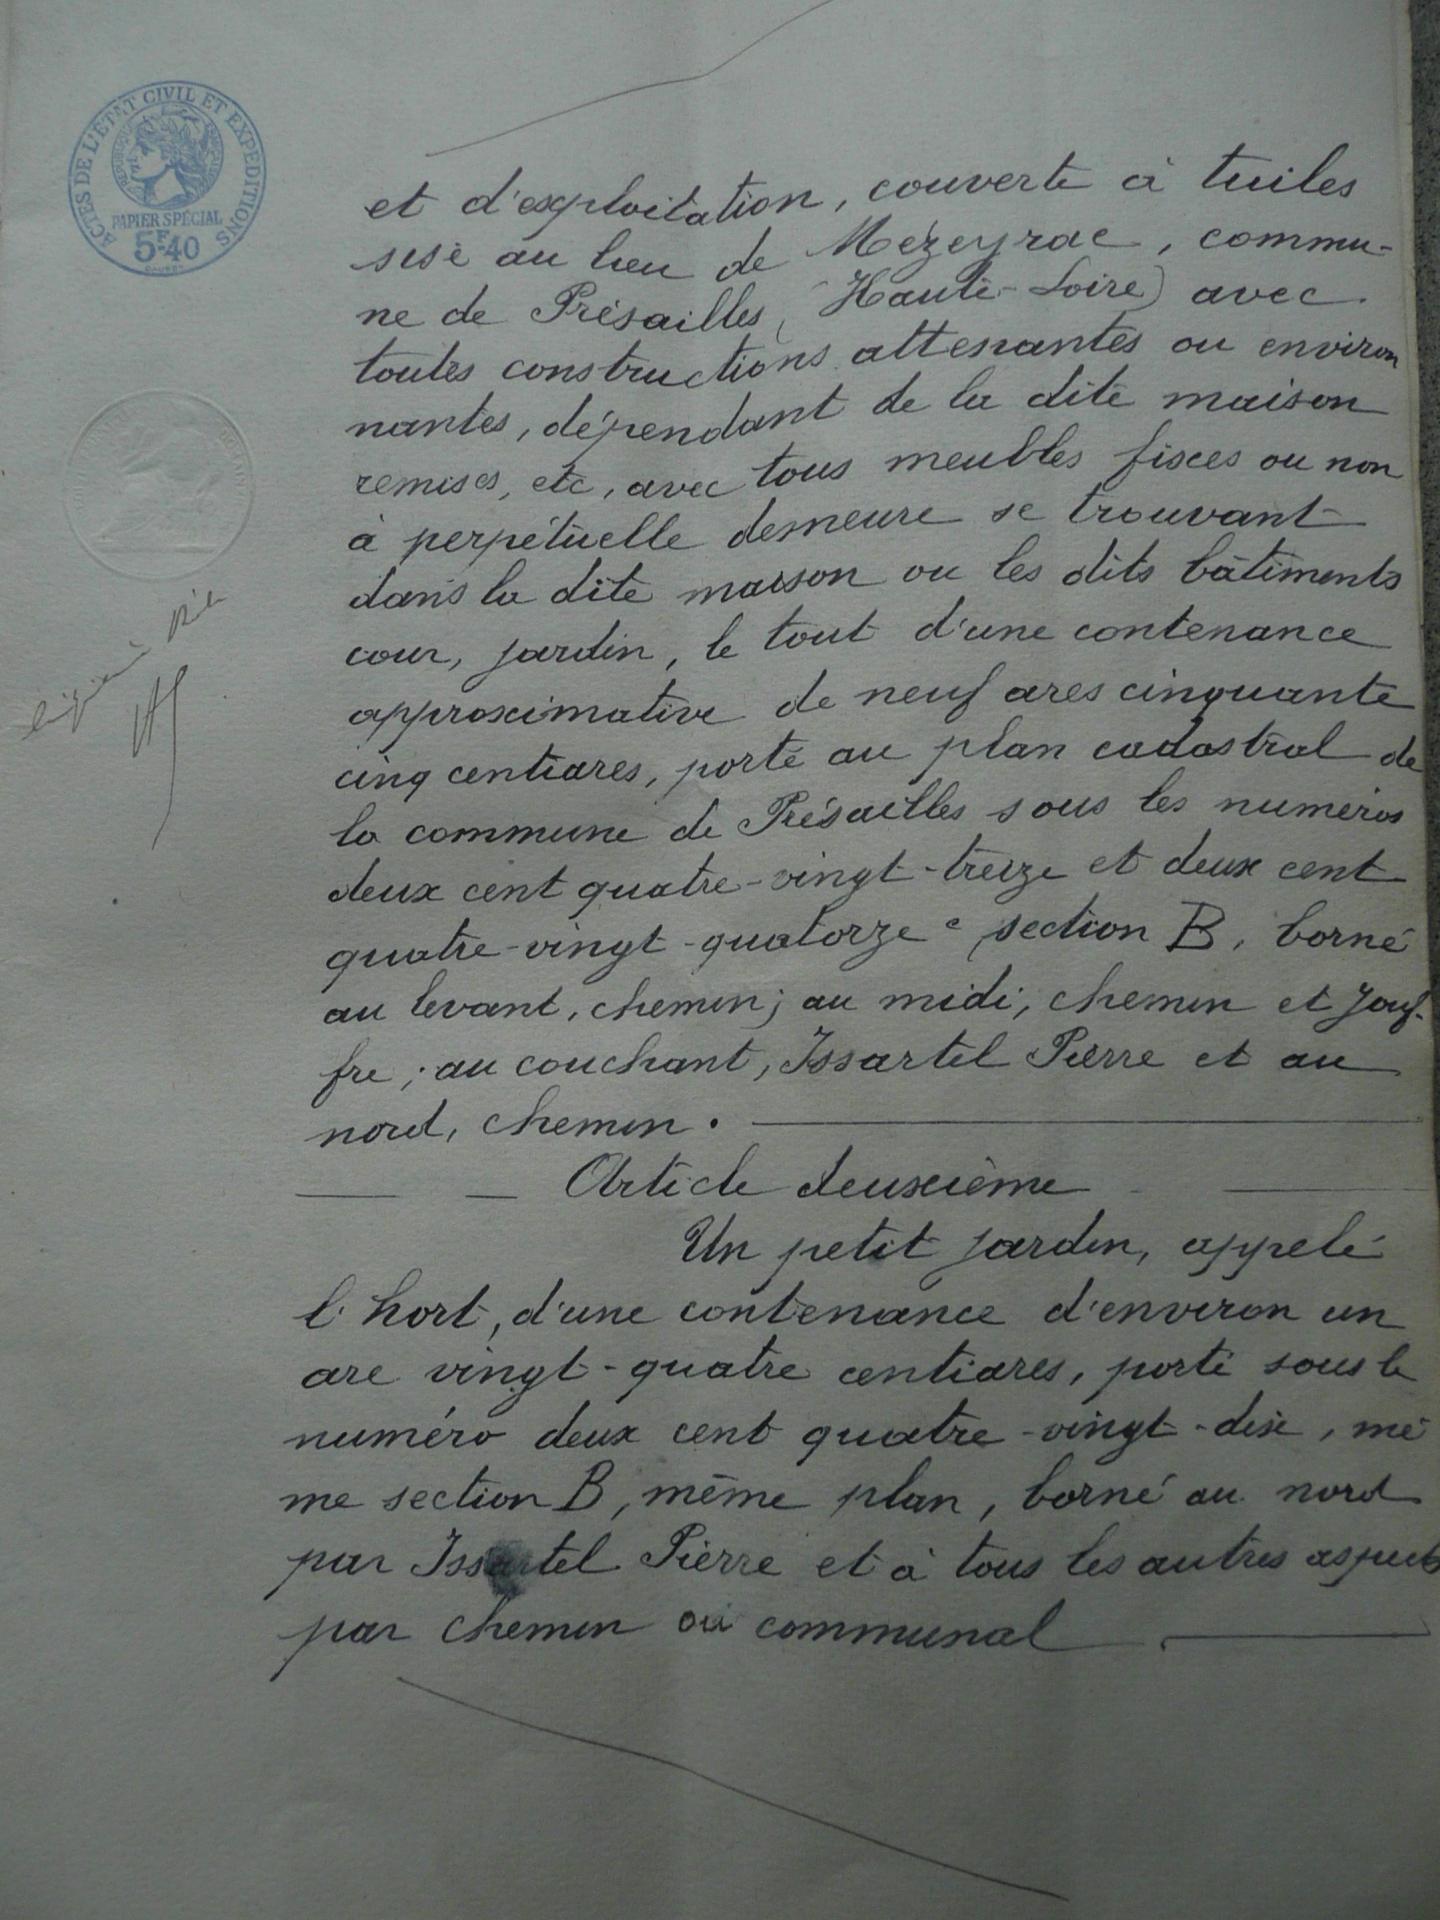 ACTES DE L'ÉTAT CIVIL ET EXPÉDITIONS
RÉPUBLIQUE FRANÇAISE
PAPIER SPÉCIAL
5F.40
et d'exploitation, couverte à tuiles
sise au lieu de Mézeyrac, commu-
ne de Présailles (Haute-Loire) avec
toutes constructions attenantes ou environ
nantes, dépendant de la dite maison
remises, etc, avec tous meubles fixes ou non
à perpétuelle demeure se trouvant
dans la dite maison ou les dits bâtiments
cour, jardin, le tout d'une contenance
approximative de neuf ares cinquante
cinq centiares, porté au plan cadastral de
la commune de Présailles sous les numéros
deux cent quatre-vingt-treize et deux cent
quatre-vingt-quatorze section B, borné
au levant, chemin; au midi, chemin et Jouf-
fre; au couchant, Issartel Pierre et au
nord, chemin.
Article deuxième
Un petit jardin, appelé
l'hort, d'une contenance d'environ un
are vingt-quatre centiares, porté sous le
numéro deux cent quatre-vingt-dix, mê
me section B, même plan, borné au nord
par Issartel Pierre et à tous les autres aspects
par chemin ou communal